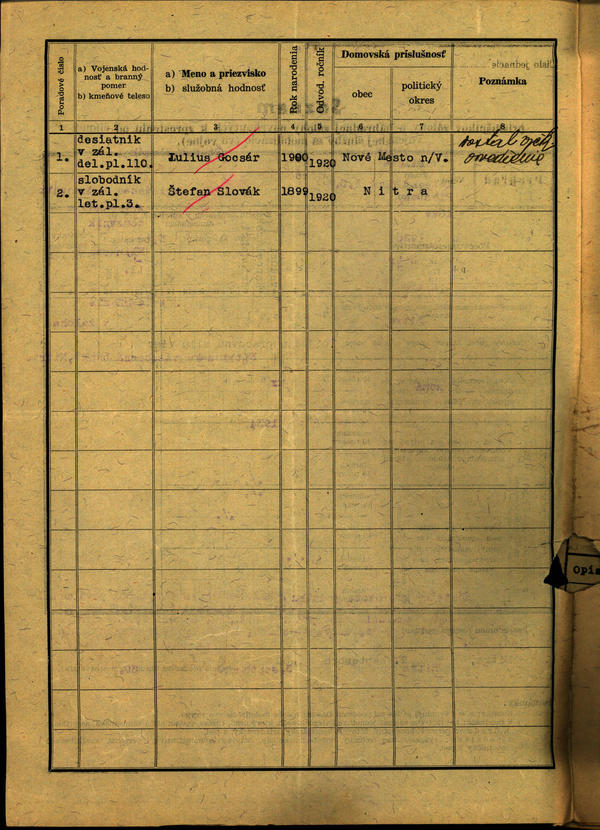 Poradové číslo
a) Vojenská hod-
nosť a branný
pomer
b) kmeňové teleso
a) Meno a priezvisko
b) služobná hodnosť
Rok narodenia
Odvod. ročník
Domovská príslušnosť
obec
politický
okres
Poznámka
1 2 3 4 5 6 7 8
desiatnik
v zál.
1. del.pl.110. Julius Gocsár 1900 1920 Nové Mesto n/V. dostal
slobodník
2. v zál. Štefan Slovák 1899 1920 Nitra
let.pl.3.
Opis